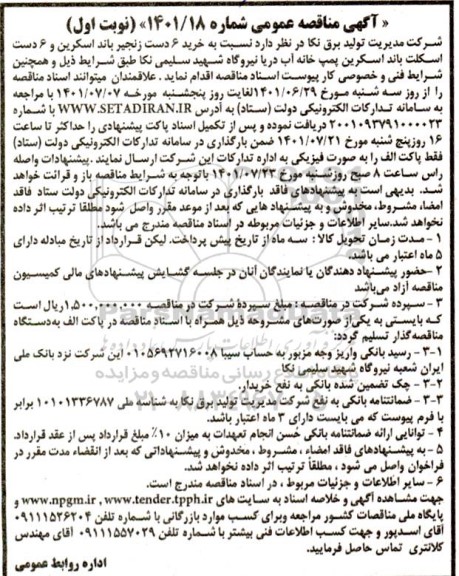 « آگهی مناقصه عمومی شماره ۱۴۰۱/۱۸» (نوبت اول)
شرکت مدیریت تولید برق نکا در نظر دارد نسبت به خرید ۶ دست زنجیر باند اسکرین و ۶ دست
اسکلت باند اسکرین پمپ خانه آب دریا نیروگاه شهید سلیمی نکا طبق شرایط ذیل و همچنین
شرایط فنی و خصوصی کار پیوست اسناد مناقصه اقدام نماید . علاقمندان میتوانند اسناد مناقصه
را از روز سه شنبه مورخ ۱۴۰۱/۰۶/۲۹ لغایت روز پنجشنبه مورخه ۱۴۰۱/۰۷/۰۷ با مراجعه
به سامانه تدارکات الکترونیکی دولت (ستاد) به آدرس WWW.SETADIRAN.IR با شماره
۲۰۰۱۰۹۳۷۹۱۰۰۰۰۲۳ دریافت نموده و پس از تکمیل اسناد پاکت پیشنهادی را حداکثر تا ساعت
۱۶ روزپنج شنبه مورخ ۱۴۰۱/۰۷/۲۱ ضمن بارگذاری در سامانه تدارکات الکترونیکی دولت (ستاد)
فقط پاکت الف را به صورت فیزیکی به اداره تدارکات این شرکت ارسال نمایند .پیشنهادات واصله
راس ساعت ۸ صبح روزشنبه مورخ ۱۴۰۱/۰۷/۲۳ باتوجه به شرایط مناقصه باز و قرائت خواهد
شد. بدیهی است به پیشنهادهای فاقد بارگذاری در سامانه تدارکات الکترونیکی دولت ستاد فاقد
امضا، مشروط، مخدوش و به پیشنهاد هایی که بعد از موعد مقرر واصل شود مطلقا ترتیب اثر داده
نخواهد شد.سایر اطلاعات و جزئیات مربوطه در اسناد مناقصه مندرج می باشد.
۱ - مدت زمان تحویل کالا : سه ماه از تاریخ پیش پرداخت. لیکن قرارداد از تاریخ مبادله دارای
۵ ماه اعتبار می باشد.
۲ -حضور پیشنهاد دهندگان یا نمایندگان آنان در جلسه گشایش پیشنهادهای مالی کمیسیون
مناقصه آزاد می‌باشد
۳ - سپرده شرکت در مناقصه : مبلغ سپردۀ شرکت در مناقصه ۱,۵۰۰,۰۰۰,۰۰۰ ریال است
که بایستی به یکی از صورت‌های مشروحه ذیل همراه با اسناد مناقصه در پاکت الف به‌دستگاه
مناقصه‌گذار تسلیم گردد:
۳-۱ - رسید بانکی واریز وجه مزبور به حساب سیبا ۰۱۰۵۶۹۲۷۱۶۰۰۸ این شرکت نزد بانک ملی
ایران شعبه نیروگاه شهید سلیمی نکا
۳-۲ - چک تضمین شده بانکی به نفع خریدار.
۳-۳ - ضمانتنامه بانکی به نفع شرکت مدیریت تولید برق نکا به شناسه ملی ۱۰۱۰۱۳۳۶۷۸۷ برابر
با فرم پیوست که می بایست دارای ۳ ماه اعتبار باشد.
۴ - توانایی ارائه ضمانتنامه بانکی حُسن انجام تعهدات به میزان ۱۰٪ مبلغ قرارداد پس از عقد قرارداد.
۵ - به پیشنهادهای فاقد امضاء ، مشروط ، مخدوش و پیشنهاداتی که بعد از انقضاء مدت مقرر در
فراخوان واصل می شود ، مطلقاً ترتیب اثر داده نخواهد شد.
۶ - سایر اطلاعات و جزئیات مربوط ، در اسناد مناقصه مندرج است.
جهت مشاهده آگهی و خلاصه اسناد به سایت های www.npgm.ir , www.tender.tpph.ir و
پایگاه ملی مناقصات کشور مراجعه وبرای کسب موارد بازرگانی با شماره تلفن ۰۹۱۱۱۵۲۶۲۰۴
آقای اسدپور و جهت کسب اطلاعات فنی بیشتر با شماره تلفن ۰۹۱۱۱۵۵۷۰۲۹ آقای مهندس
کلانتری تماس حاصل فرمایید.
اداره روابط عمومی